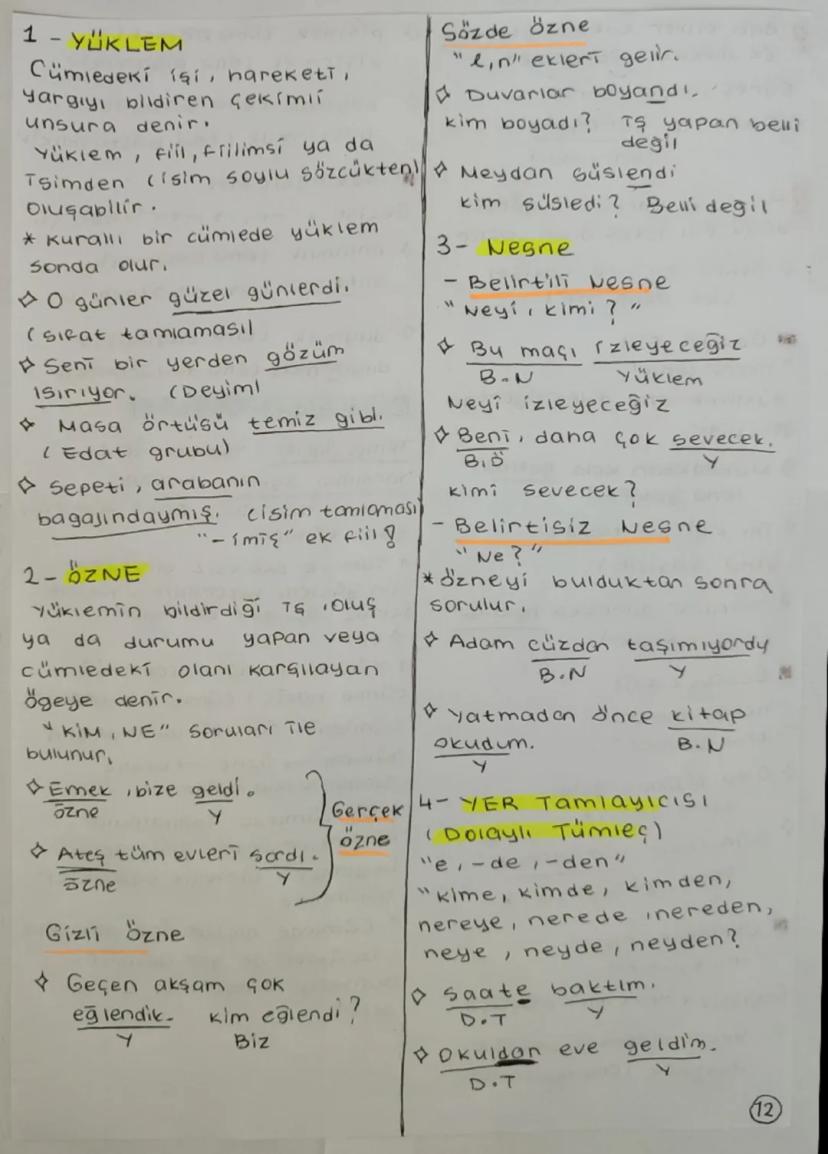 1 - YÜKLEM
Cümledeki işi, hareketi,
yargıyı bildiren çekimli
unsura denir.
Yüklem, fiil, fiilimsi ya da
isimden (isim soylu sözcükten)
oluşabilir.
* Kurallı bir cümlede yüklem
sonda olur.
◇ O günler güzel günlerdi.
(sıfat tamlaması)
◇ Seni bir yerden gözüm
ısırıyor. (Deyim)
◇ Masa örtüsü temiz gibi.
(Edat grubu)
◇ Sepeti, arabanın
bagajındaymış. (isim tamlaması)
"-imiş" ek fiil!
2 - ÖZNE
Yüklemin bildirdiği iş, oluş
ya da durumu yapan veya
cümledeki olanı karşılayan
ögeye denir.
"KİM, NE" soruları ile
bulunur.
◇ Emek, bize geldi.
özne Y
◇ Ateş tüm evleri sardı.
özne Y
Gerçek
özne
Gizli özne
◇ Geçen akşam çok
eğlendik. kim eğlendi?
Y Biz
Sözde özne
"l,n" ekleri gelir.
◇ Duvarlar boyandı.
kim boyadı? iş yapan belli
değil
◇ Meydan süslendi
kim süsledi? Belli değil
3- Nesne
- Belirtili Nesne
"Neyi, kimi?"
◇ Bu maçı izleyeceğiz
B.N Yüklem
Neyi izleyeceğiz
◇ Beni, daha çok sevecek.
B.Ö Y
kimi sevecek?
- Belirtisiz Nesne
"Ne?"
* özneyi bulduktan sonra
sorulur.
◇ Adam cüzdan taşımıyordu
B.N Y
◇ Yatmadan önce kitap
okudum. B.N
Y
4- YER Tamlayıcısı
(Dolaylı Tümleç)
"e, -de, -den"
"kime, kimde, kimden,
nereye, nerede, nereden,
neye, neyde, neyden?
◇ Saate baktım.
D.T Y
◇ Okuldan eve geldim.
D.T Y
12